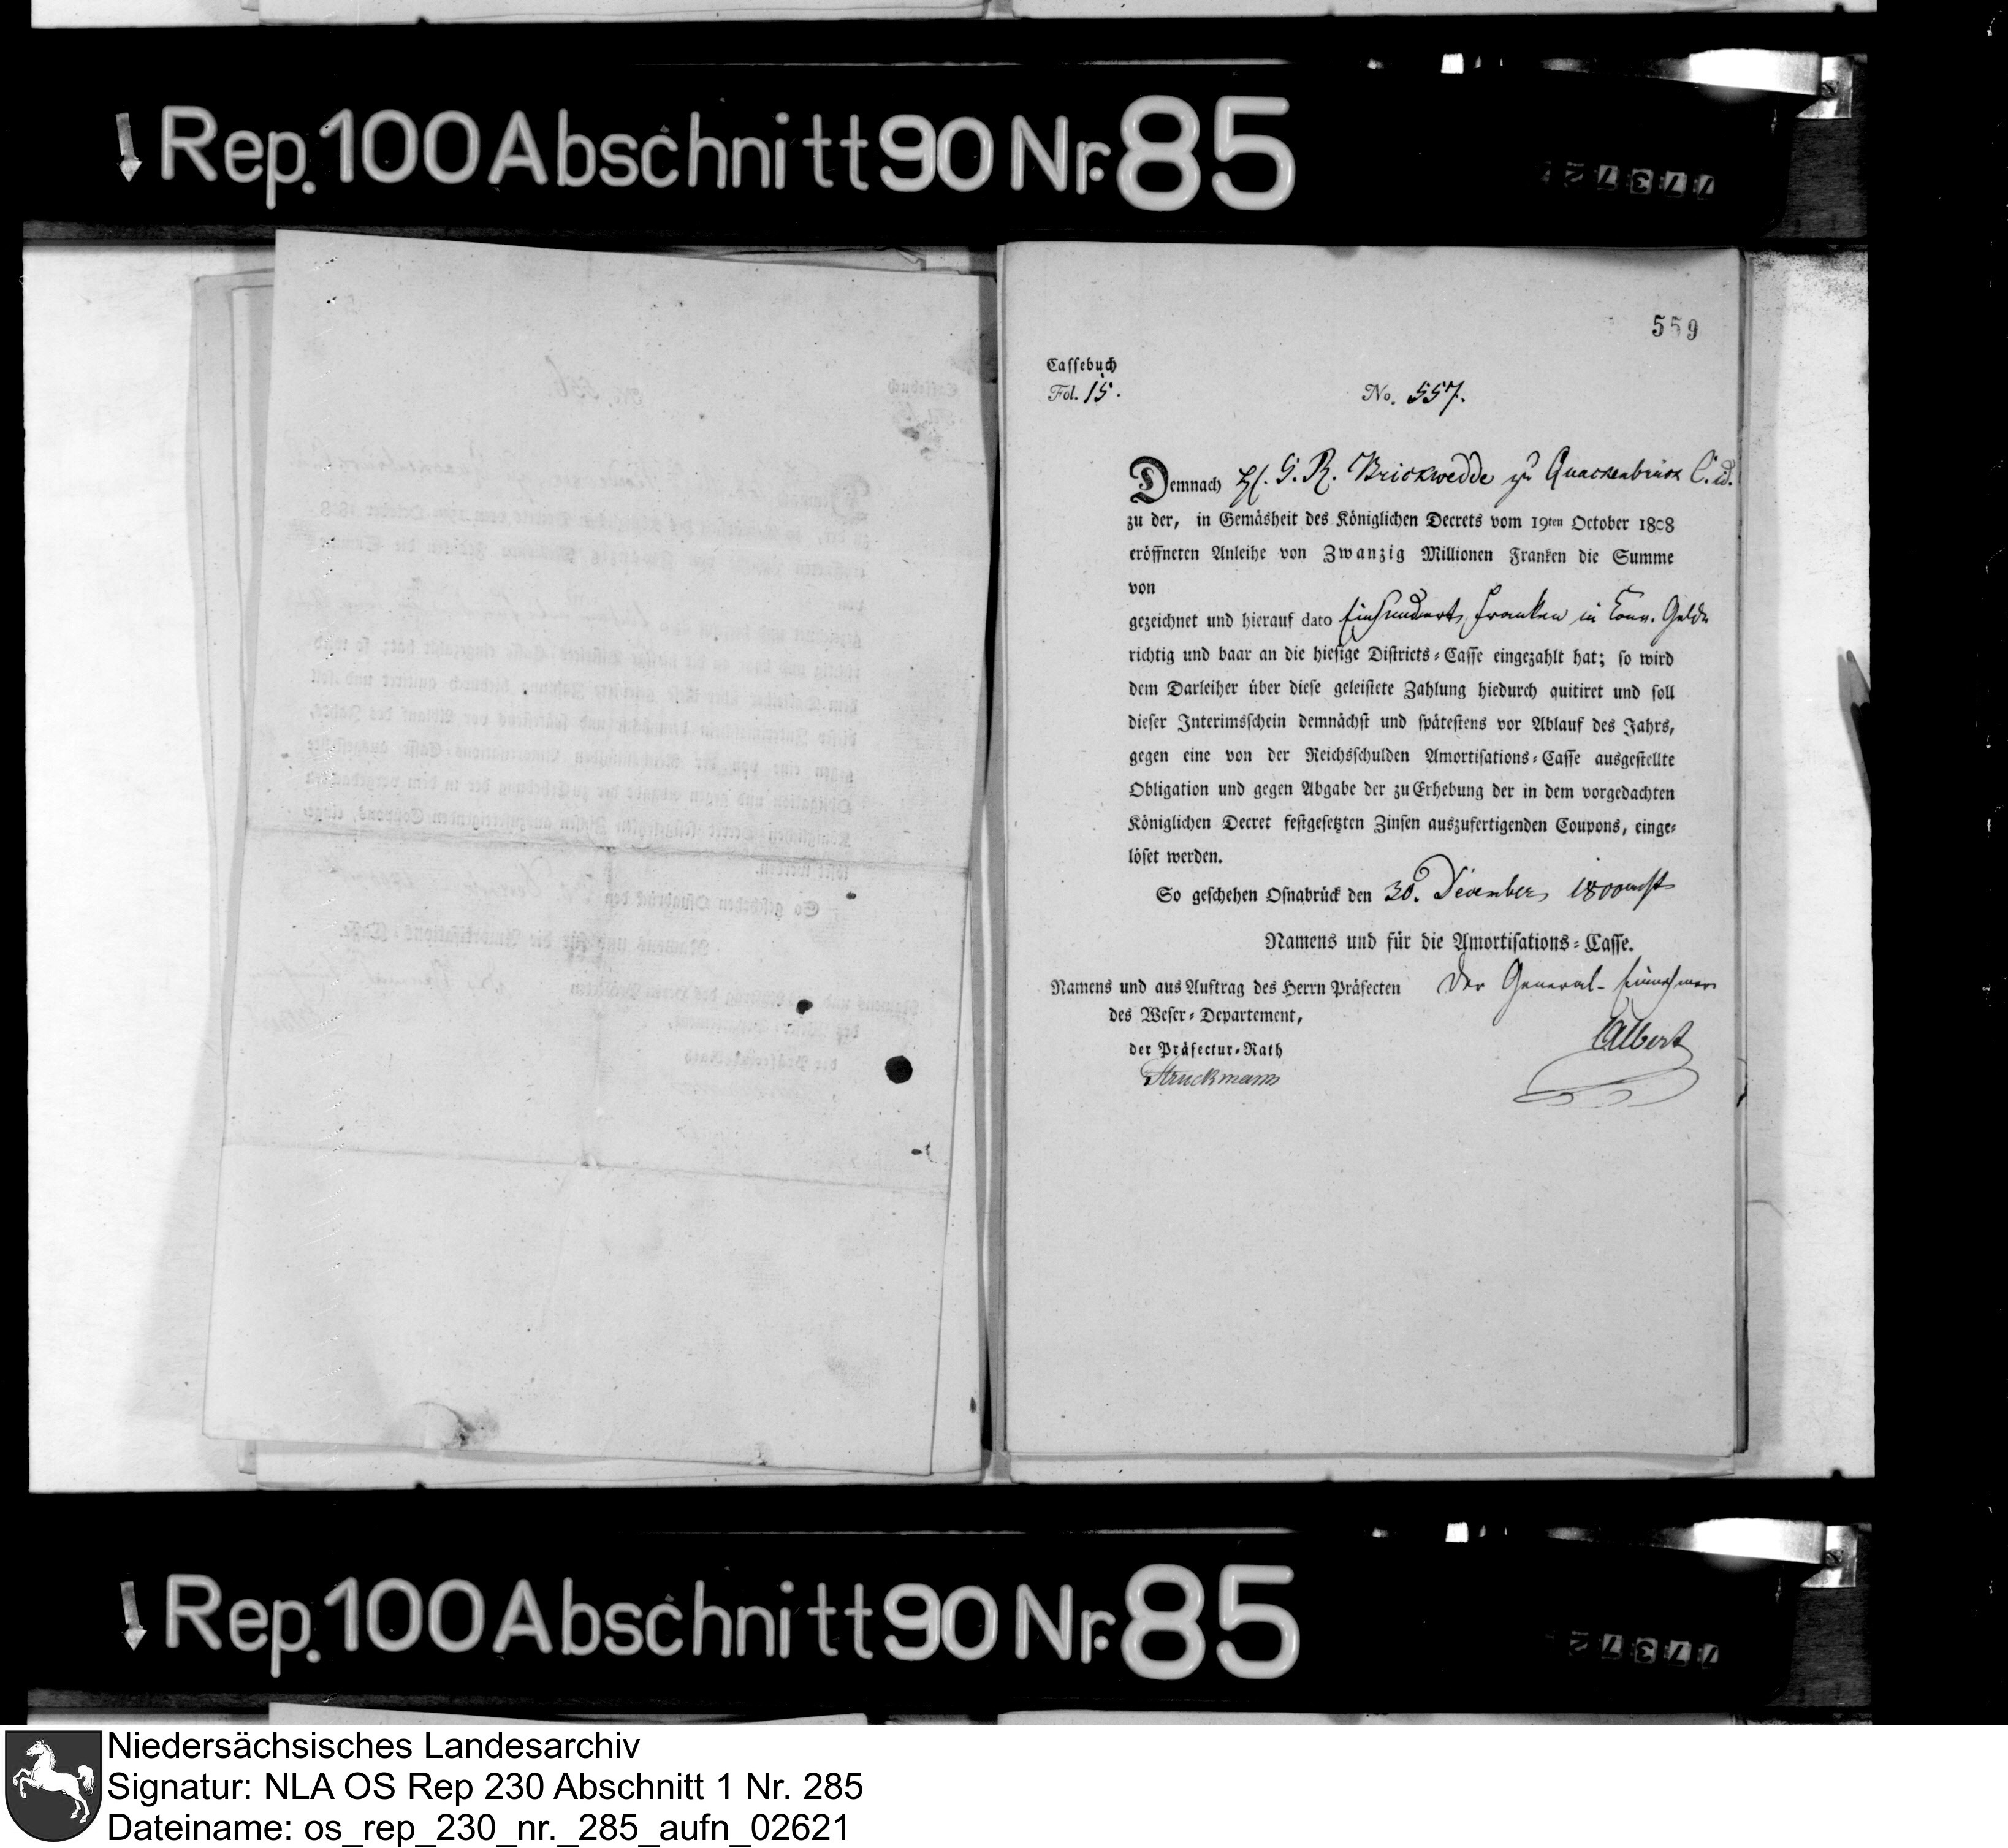 Rep. 100 Abschnitt 90 Nr. 85
559
Cassebuch
Fol. 15.
No. 557.
Demnach H. G. R. Brickwedde zu Quackenbrück C. id.
zu der, in Gemäsheit des Königlichen Decrets vom 19ten October 1808
eröffneten Anleihe von Zwanzig Millionen Franken die Summe
von
gezeichnet und hierauf dato Einhundert Franken in Conv. Gelde
richtig und baar an die hiesige Districts-Casse eingezahlt hat; so wird
dem Darleiher über diese geleistete Zahlung hiedurch quitiret und soll
dieser Interimsschein demnächst und spätestens vor Ablauf des Jahrs,
gegen eine von der Reichsschulden Amortisations-Casse ausgestellte
Obligation und gegen Abgabe der zu Erhebung der in dem vorgedachten
Königlichen Decret festgesetzten Zinsen auszufertigenden Coupons, einge-
löset werden.
So geschehen Osnabrück den 30. December 1800acht
Namens und für die Amortisations-Casse.
Namens und aus Auftrag des Herrn Präfecten
Der General-Einnehmer
des Weser-Departement,
Albert
der Präfectur-Rath
Struckmann
Rep. 100 Abschnitt 90 Nr. 85
Niedersächsisches Landesarchiv
Signatur: NLA OS Rep 230 Abschnitt 1 Nr. 285
Dateiname: os_rep_230_nr._285_aufn_02621